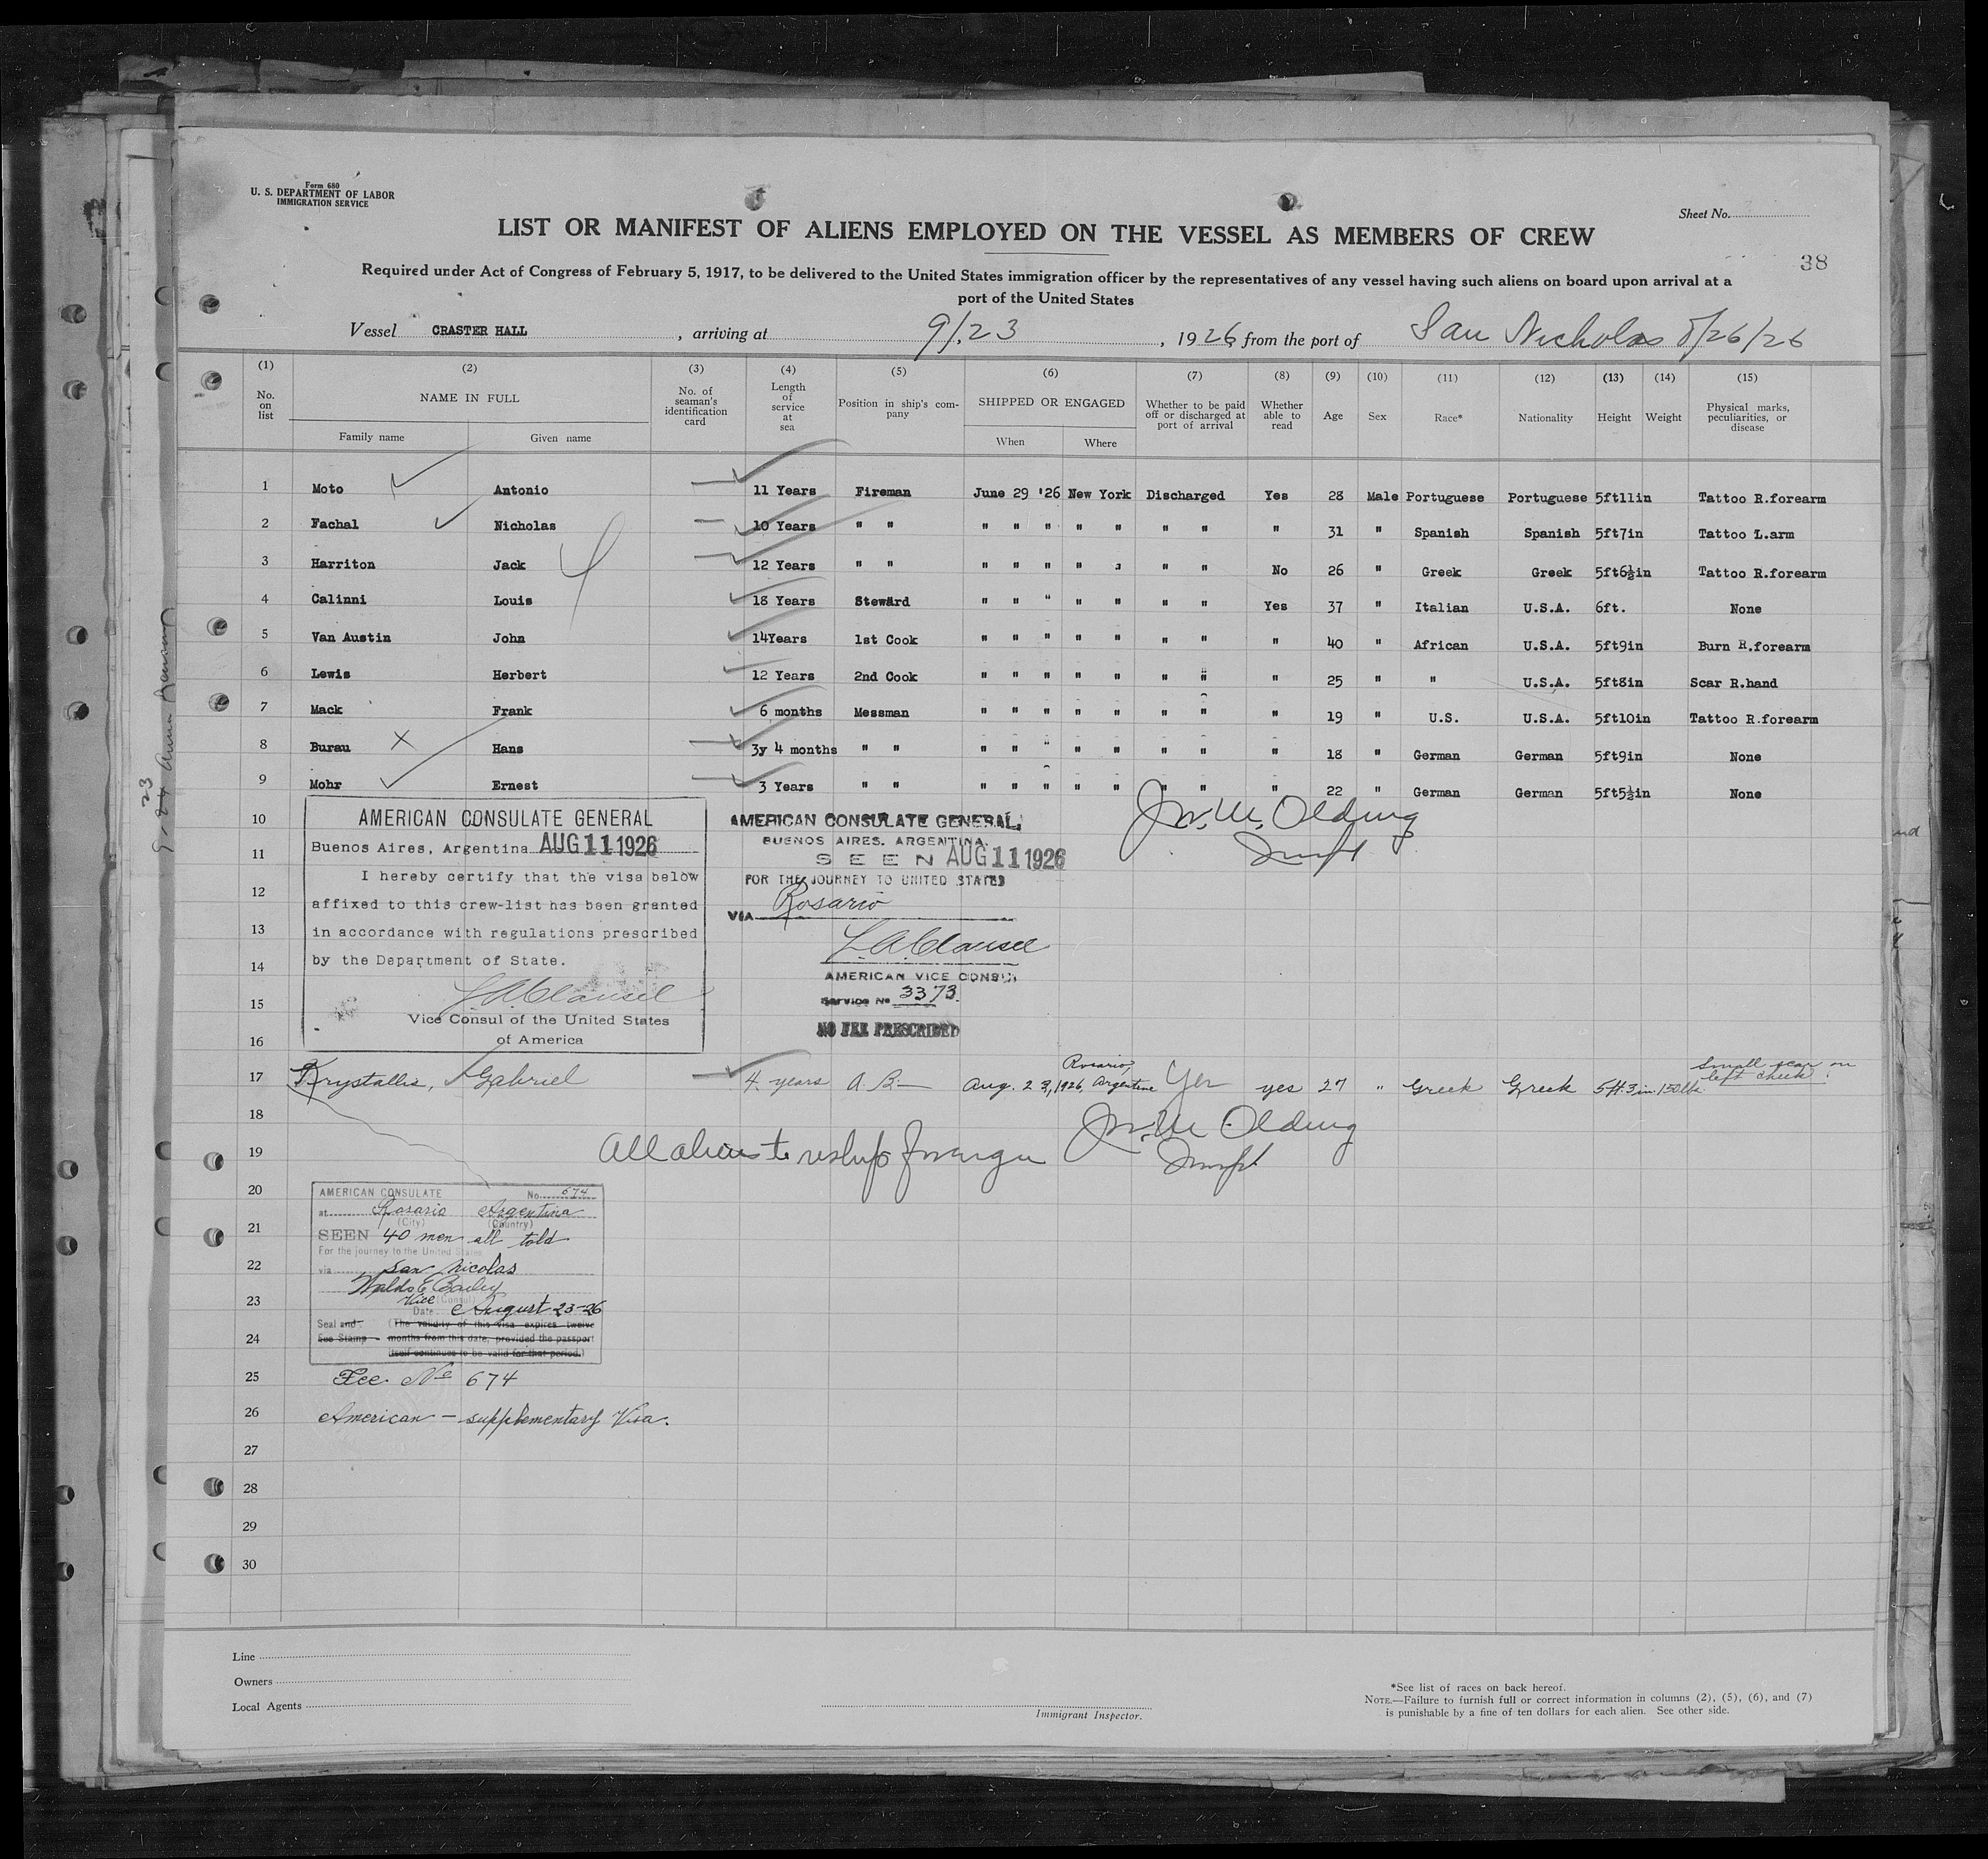 Form 680
U. S. DEPARTMENT OF LABOR
IMMIGRATION SERVICE
Sheet No.
LIST OR MANIFEST OF ALIENS EMPLOYED ON THE VESSEL AS MEMBERS OF CREW
38
Required under Act of Congress of February 5, 1917, to be delivered to the United States immigration officer by the representatives of any vessel having such aliens on board upon arrival at a
port of the United States
Vessel CRASTER HALL, arriving at 9/23, 1926, from the port of San Nicholas 8/26/26
(1) (2) (3) (4) (5) (6) (7) (8) (9) (10) (11) (12) (13) (14) (15)
No. on list NAME IN FULL No. of seaman's identification card Length of service at sea Position in ship's company SHIPPED OR ENGAGED Whether to be paid off or discharged at port of arrival Whether able to read Age Sex Race* Nationality Height Weight Physical marks, peculiarities, or disease
Family name Given name When Where
1 Moto Antonio 11 Years Fireman June 29 '26 New York Discharged Yes 28 Male Portuguese Portuguese 5ft11in Tattoo R.forearm
2 Fachal Nicholas 10 Years " " " " " " " " " " 31 " Spanish Spanish 5ft7in Tattoo L.arm
3 Harriton Jack 12 Years " " " " " " " " " No 26 " Greek Greek 5ft6½in Tattoo R.forearm
4 Calinni Louis 18 Years Steward " " " " " " " Yes 37 " Italian U.S.A. 6ft. None
5 Van Austin John 14Years 1st Cook " " " " " " " " 40 " African U.S.A. 5ft9in Burn R.forearm
6 Lewis Herbert 12 Years 2nd Cook " " " " " " " " 25 " " U.S.A. 5ft8in Scar R.hand
7 Mack Frank 6 months Messman " " " " " " " " 19 " U.S. U.S.A. 5ft10in Tattoo R.forearm
8 Burau Hans 3y 4 months " " " " " " " " " " 18 " German German 5ft9in None
9 Mohr Ernest 3 Years " " " " " " " " " " 22 " German German 5ft5½in None
10
11
12
13
14
15
16
AMERICAN CONSULATE GENERAL
Buenos Aires, Argentina AUG 11 1926
I hereby certify that the visa below
affixed to this crew-list has been granted
in accordance with regulations prescribed
by the Department of State.
Vice Consul of the United States
of America
AMERICAN CONSULATE GENERAL,
BUENOS AIRES, ARGENTINA.
SEEN AUG 11 1926
FOR THE JOURNEY TO UNITED STATES
VIA Rosario
AMERICAN VICE CONSUL
Service No 3373.
NO FEE PRESCRIBED
Olding
17 Krystallis, Gabriel 4 years A.B. Aug. 23, 1926, Rosario, Argentine Yes yes 27 " Greek Greek 5ft.3in. 150lbs. Small scar on left cheek.
18
19 All aliens to reship foreign
Olding
20
21
22
23
24
AMERICAN CONSULATE No. 674
at Rosario Argentina
(City) (Country)
SEEN 40 men all told
For the journey to the United States
via San Nicolas
Waldo E Bailey
Vice (Consul)
Date August 23-26
Seal and (The validity of this visa expires twelve
Fee Stamp months from this date, provided the passport
itself continues to be valid for that period.)
25 Fee No 674
26 American - supplementary Visa.
27
28
29
30
Line
Owners
Local Agents
Immigrant Inspector.
*See list of races on back hereof.
NOTE.—Failure to furnish full or correct information in columns (2), (5), (6), and (7)
is punishable by a fine of ten dollars for each alien. See other side.